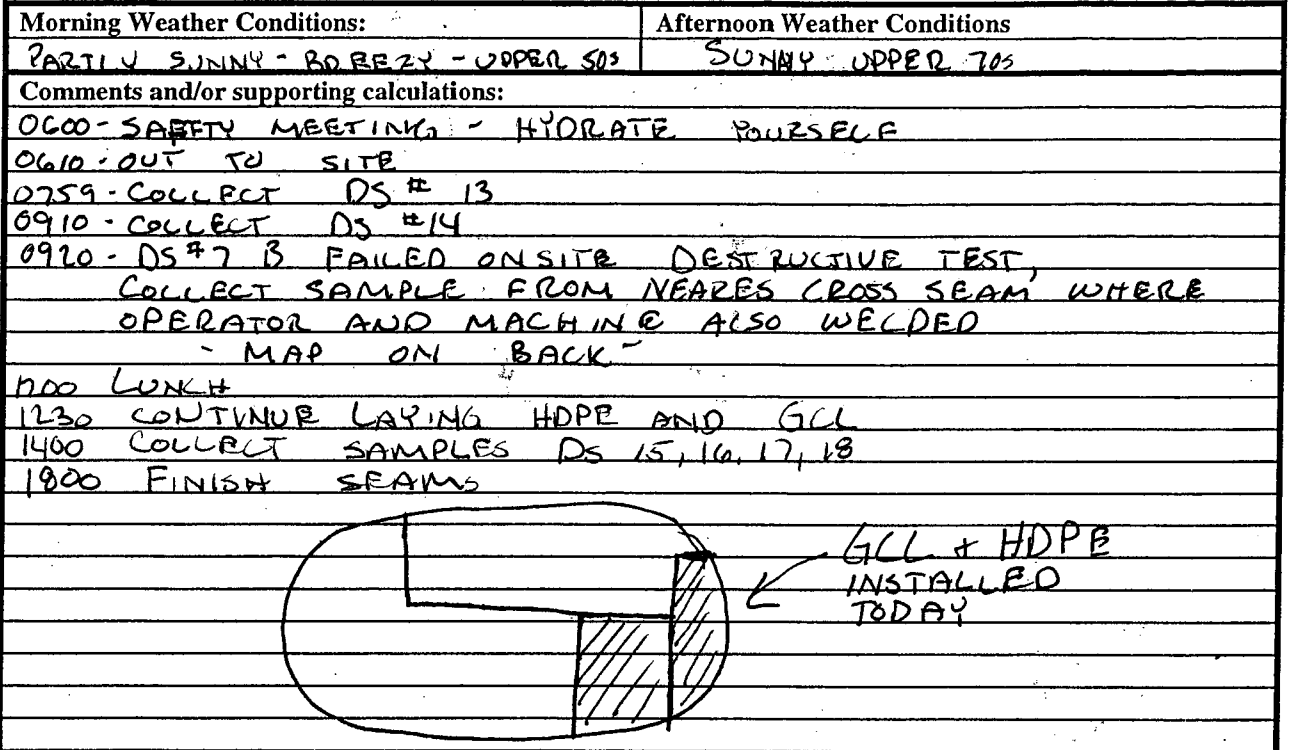 Morning Weather Conditions: Afternoon Weather Conditions
PARTLY SUNNY - BREEZY - UPPER 50s SUNNY UPPER 70s
Comments and/or supporting calculations:
0600 - SAFETY MEETING - HYDRATE YOURSELF
0610 - OUT TO SITE
0759 - COLLECT DS # 13
0910 - COLLECT DS #14
0920 - DS #7 B FAILED ONSITE DESTRUCTIVE TEST,
COLLECT SAMPLE FROM NEARES CROSS SEAM WHERE
OPERATOR AND MACHINE ALSO WELDED
- MAP ON BACK -
1200 LUNCH
1230 CONTINUE LAYING HDPE AND GCL
1400 COLLECT SAMPLES DS 15, 16, 17, 18
1800 FINISH SEAMS
GCL + HDPE
INSTALLED
TODAY